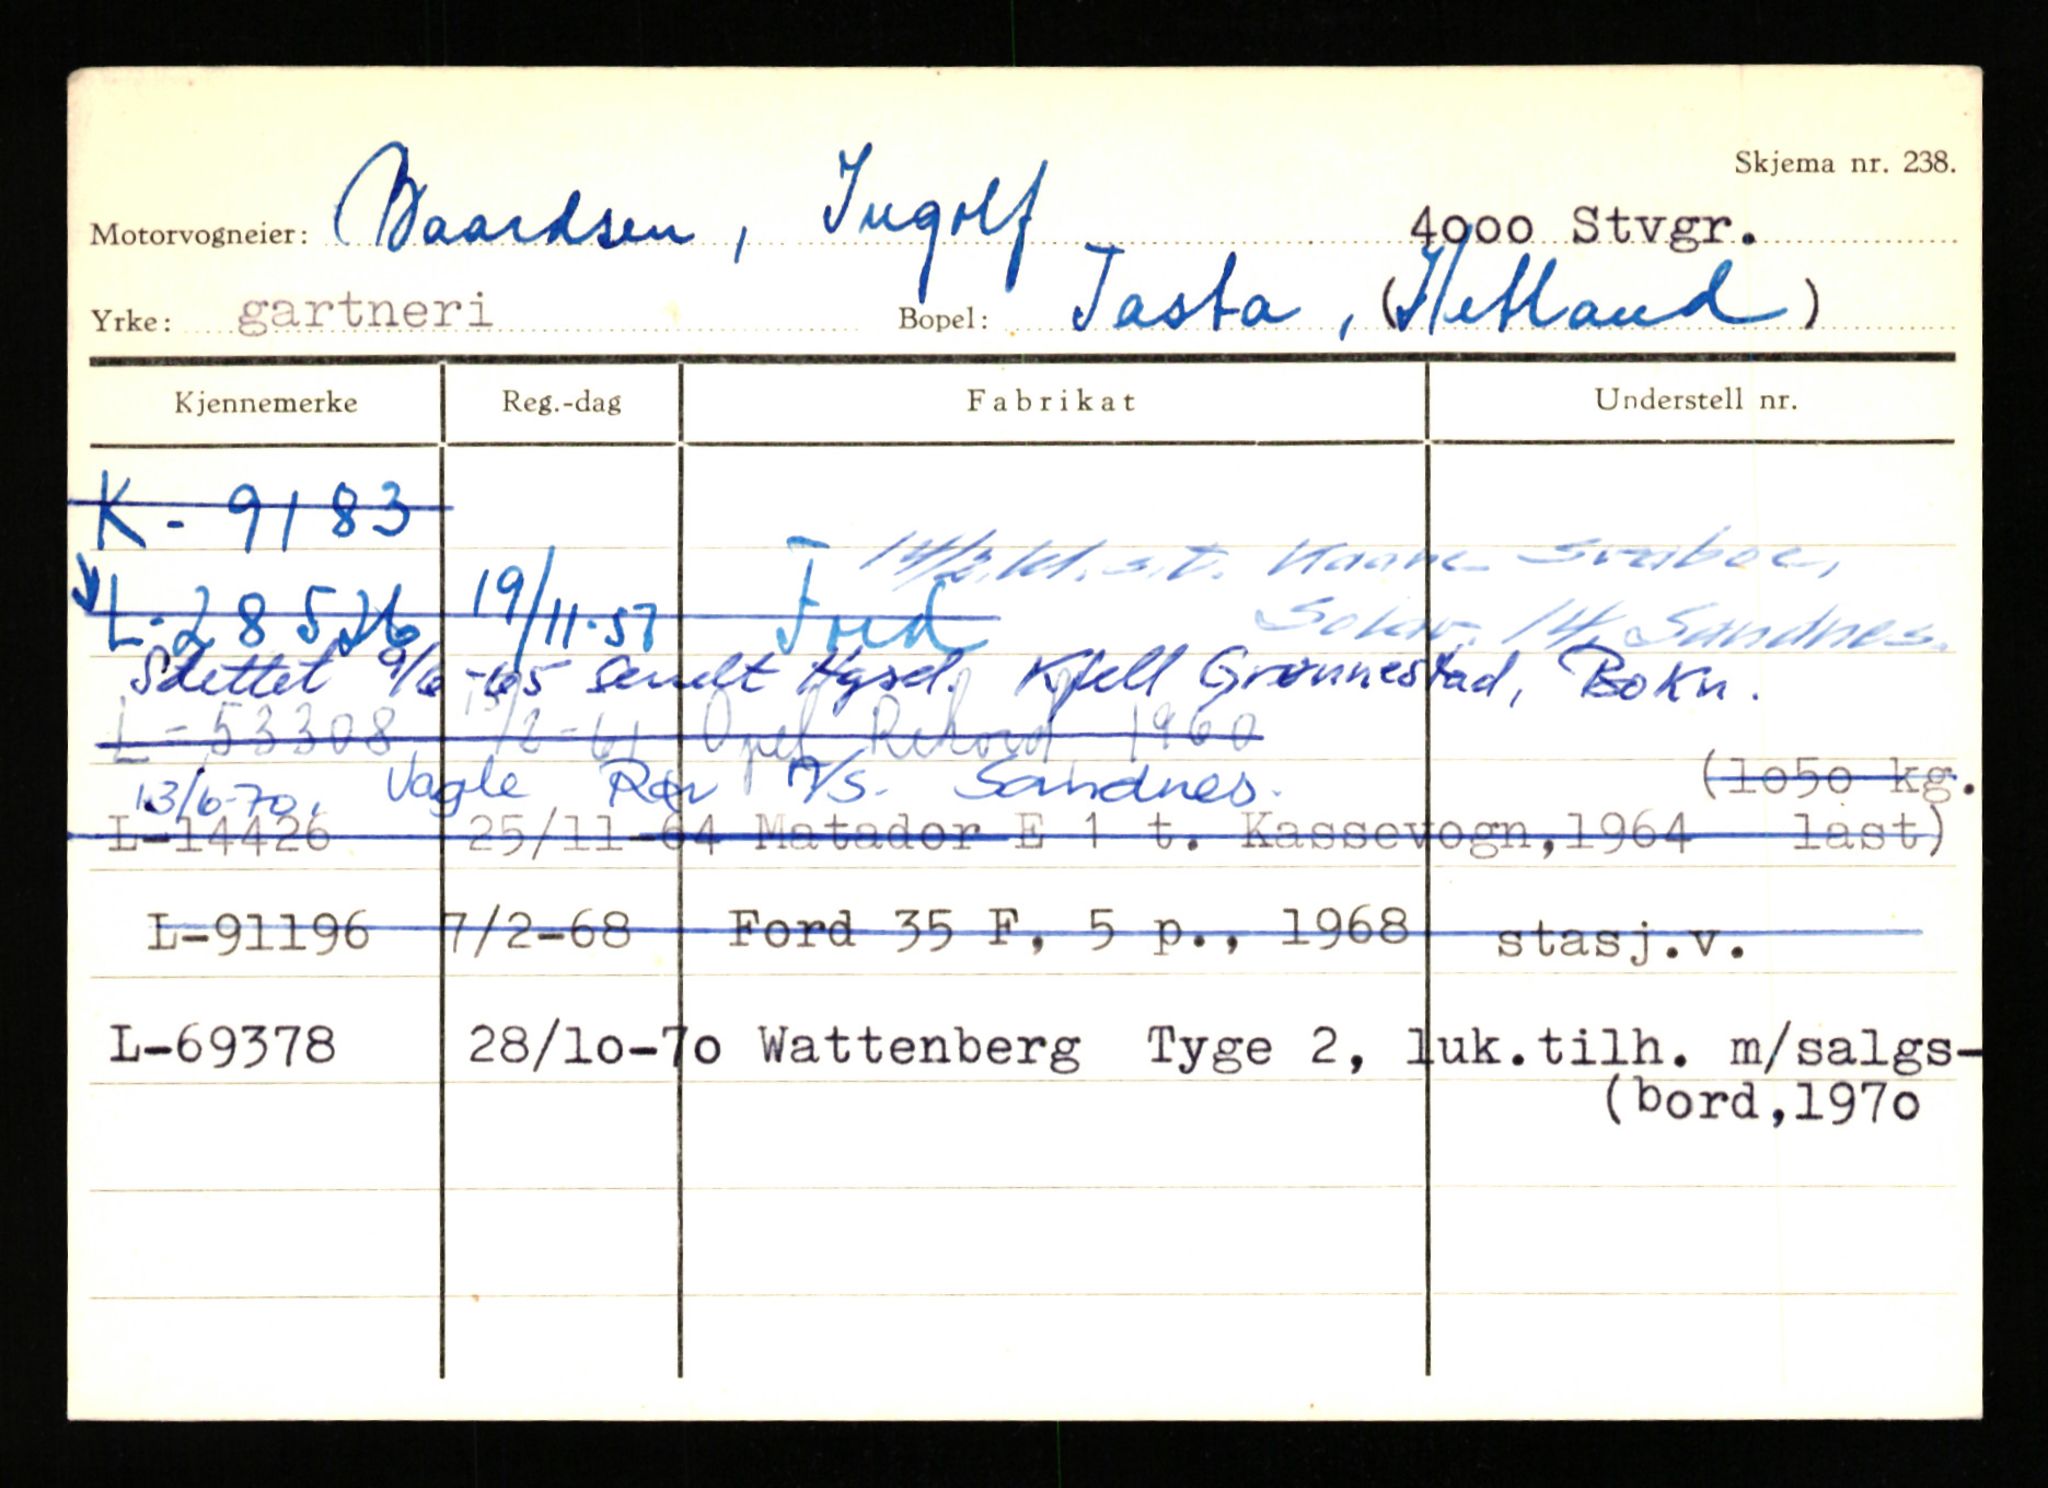 Skjema nr. 238.
Motorvogneier: Baardsen, Ingolf 4000 Stvgr.
Yrke: gartneri Bopel: Tasta, (Hetland)
Kjennemerke Reg.-dag Fabrikat Understell nr.
K - 9183
14/2.61. s.t.
L-28526 19/11-57 Ford
14, Sandnes.
Slettet 9/6-65 sendt Hgsd. Kjell Grønnestad, Bokn.
L-53308 15/2-61 Opel Rekord 1960
(1050 kg.
13/6-70, Vagle Rør A/S. Sandnes.
L-14426 25/11-64 Matador E 1 t. Kassevogn,1964 last)
L-91196 7/2-68 Ford 35 F, 5 p., 1968 stasj.v.
L-69378 28/10-70 Wattenberg Tyge 2, luk.tilh. m/salgs-
(bord,1970